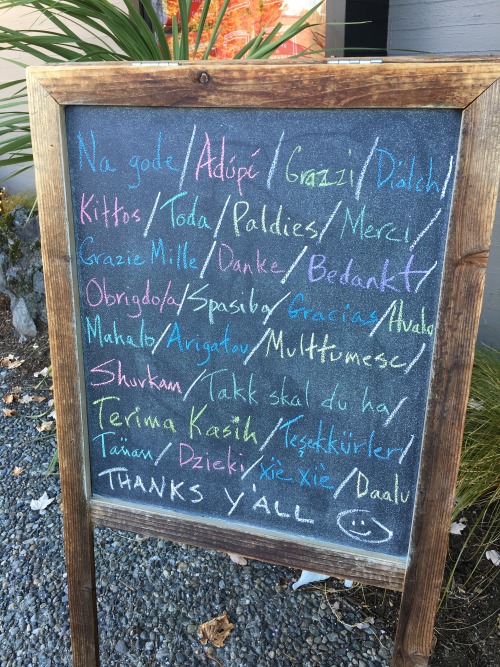 Na gode / Adúpé / Grazzi / Diolch /
Kiitos / Toda / Paldies / Merci /
Grazie Mille / Danke / Bedankt /
Obrigdo/a / Spasibo / Gracias / Hvala
Mahalo / Arigatou / Multtumesc /
Shurkan / Takk skal du ha /
Terima Kasih / Teşekkürler /
Tänan / Dzieki / xiè xiè / Daalu
THANKS Y'ALL